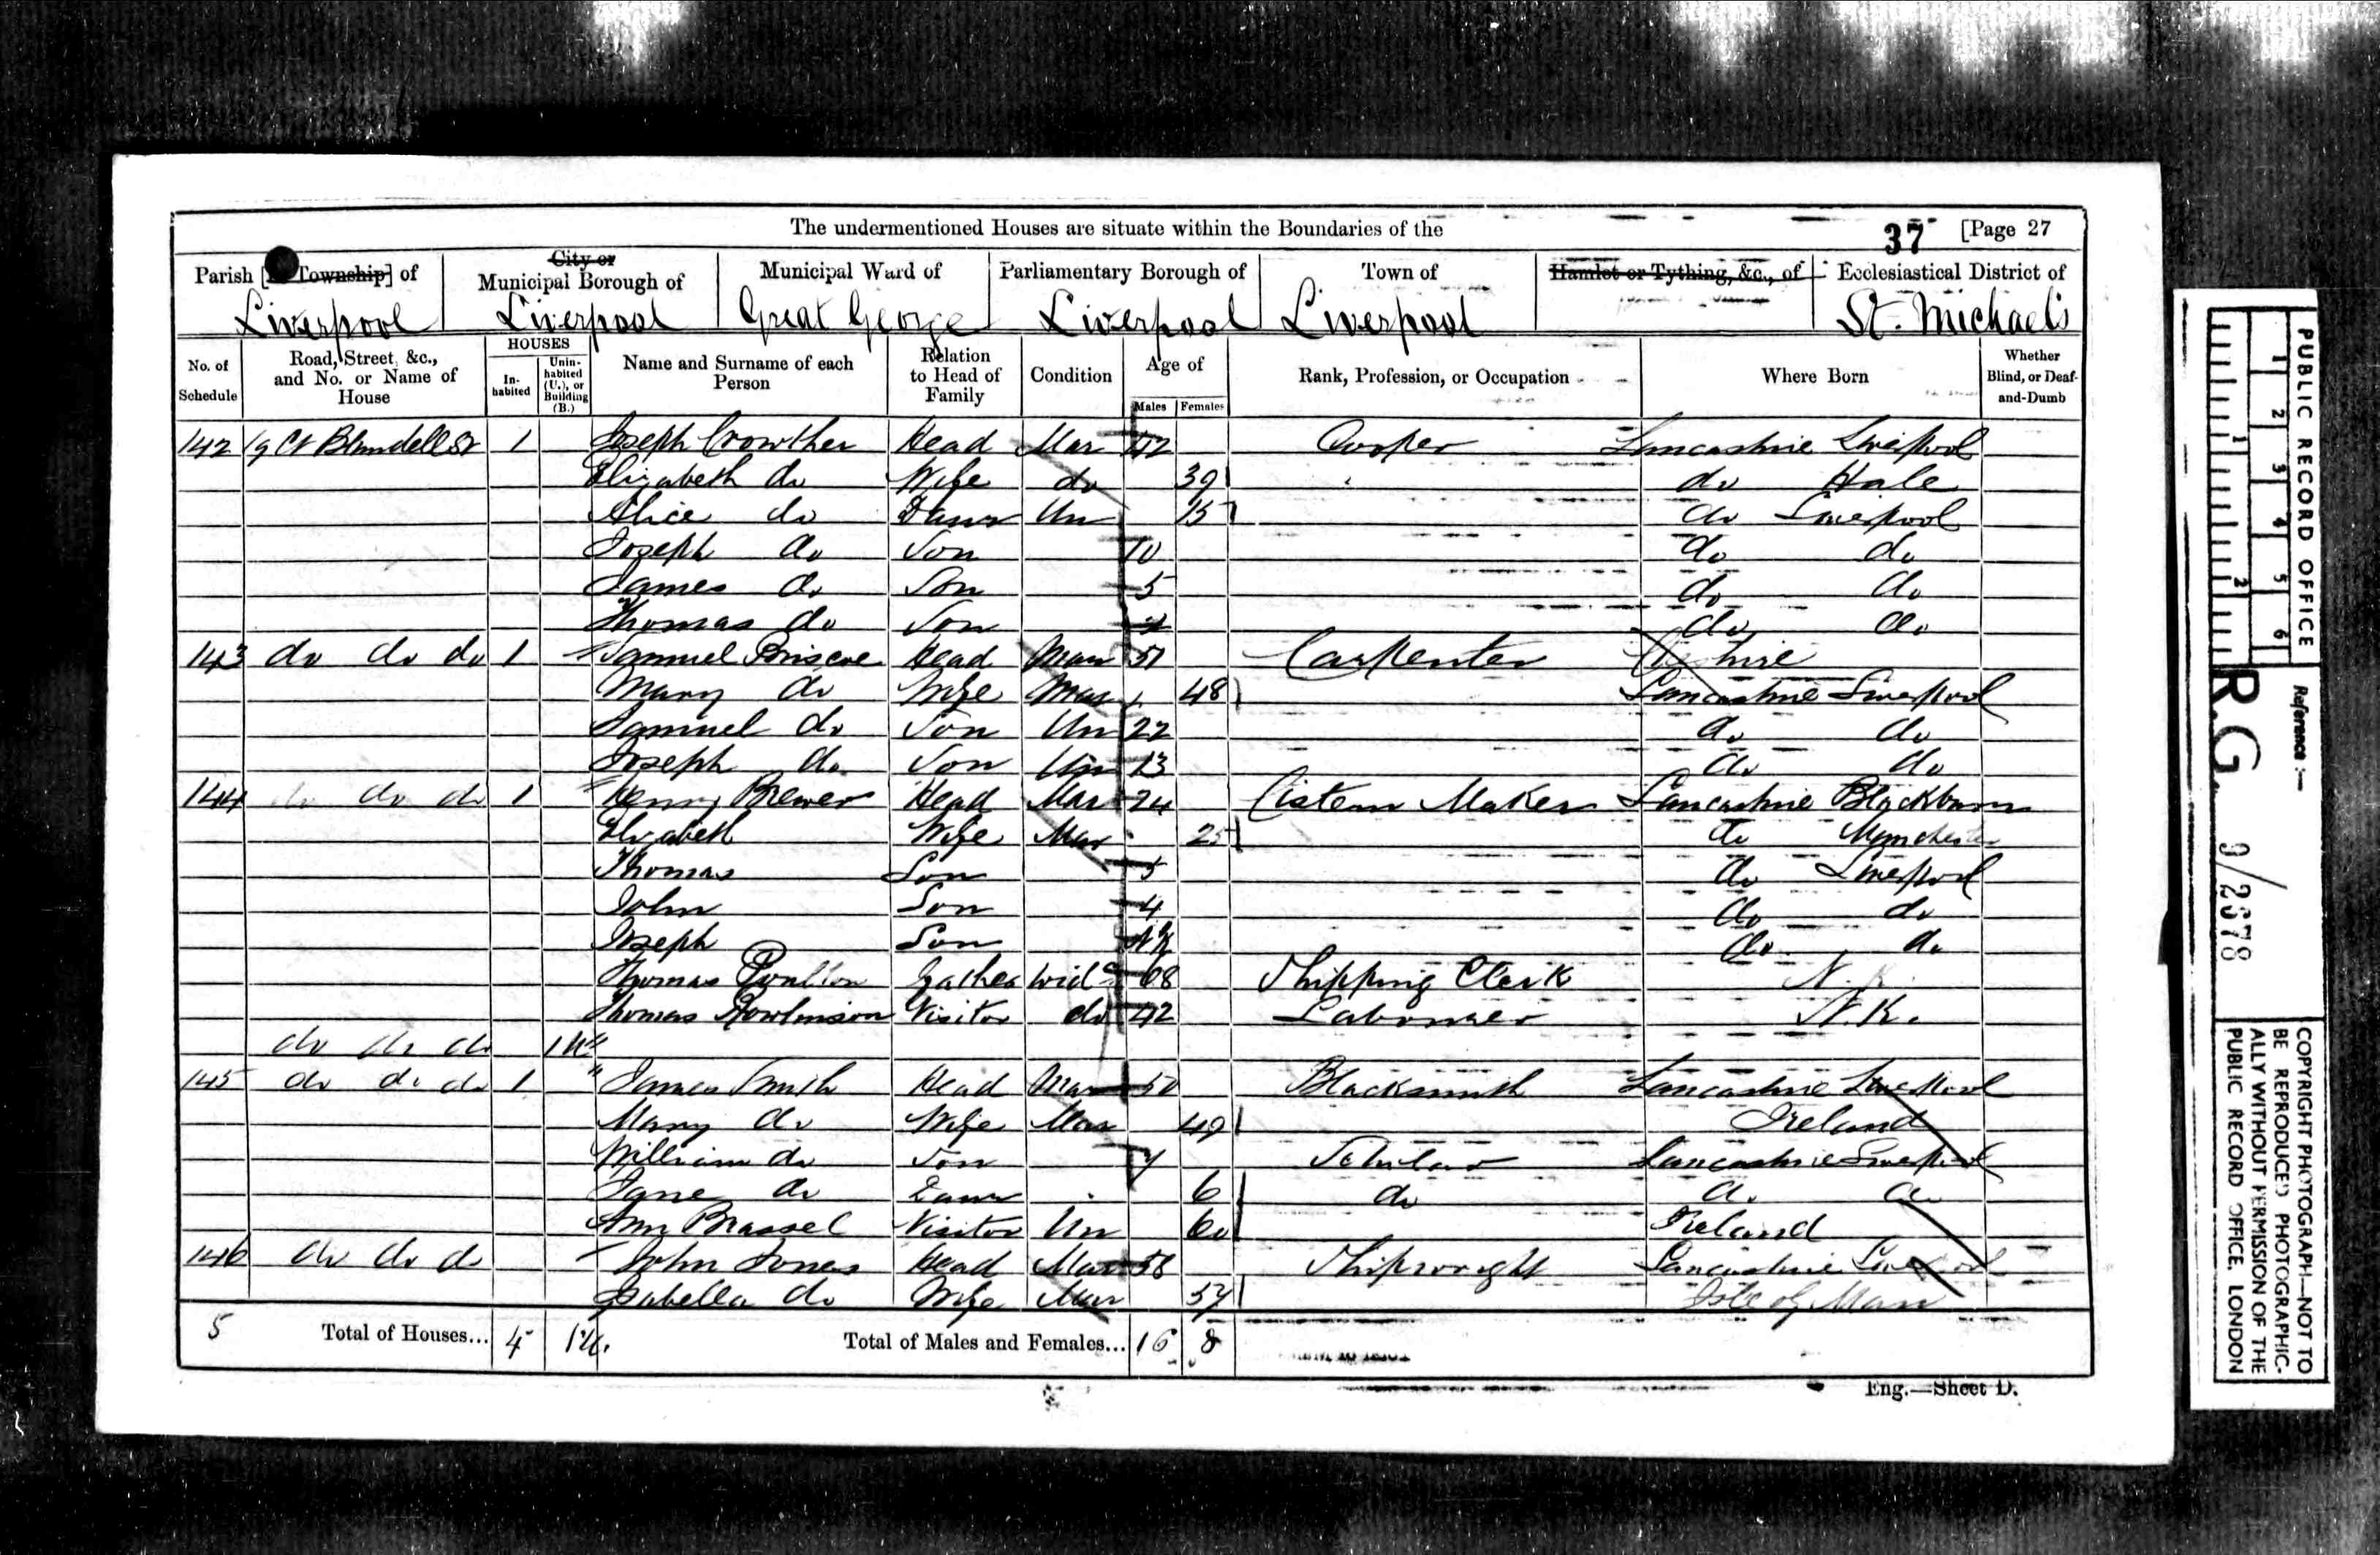 The undermentioned Houses are situate within the Boundaries of the
37 [Page 27
Parish [or Township] of
City or Municipal Borough of
Municipal Ward of
Parliamentary Borough of
Town of
Hamlet or Tything, &c., of
Ecclesiastical District of
Liverpool Liverpool Great George Liverpool Liverpool St. Michaels
No. of Schedule
Road, Street, &c., and No. or Name of House
HOUSES
In-habited
Unin-habited (U.), or Building (B.)
Name and Surname of each Person
Relation to Head of Family
Condition
Age of
Males Females
Rank, Profession, or Occupation
Where Born
Whether Blind, or Deaf-and-Dumb
142 19 Ct Blundell St 1 Joseph Crowther Head Mar 42 Cooper Lancashire Liverpool
Elizabeth do Wife do 39 do Hale
Alice do Daur Un 15 do Liverpool
Joseph do Son 10 do do
James do Son 5 do do
Thomas do Son do do
143 do do do 1 Samuel Briscoe Head Mar 51 Carpenter
Mary do Wife Mar 48 Lancashire Liverpool
Samuel do Son Un 22 do do
Joseph do Son Un 13 do do
144 do do do 1 Henry Brewer Head Mar 24 Cistern Maker Lancashire Blackburn
Elizabeth Wife Mar 25 do Manchester
Thomas Son 5 do Liverpool
John Son 4 do do
Joseph Son do do
Thomas Poulton Father Widr 68 Shipping Clerk N.K.
Thomas Rowlinson Visitor do 42 Labourer N.K.
do do do 1 U
145 do do do 1 James Smith Head Mar 50 Blacksmith Lancashire Liverpool
Mary do Wife Mar 49 Ireland
William do Son 7 Scholar Lancashire Liverpool
Jane do Daur 6 do do do
Ann Brassel Visitor Un 60 Ireland
146 do do do John Jones Head Mar 58 Shipwright Lancashire Liverpool
Isabella do Wife Mar 57 Isle of Man
5 Total of Houses... 4 1 U. Total of Males and Females... 16 8
Eng.—Sheet D.
PUBLIC RECORD OFFICE
1 2 3 4 5 6
1 2
Reference :—
R.G. 9/2678
COPYRIGHT PHOTOGRAPH—NOT TO
BE REPRODUCED PHOTOGRAPHIC-
ALLY WITHOUT PERMISSION OF THE
PUBLIC RECORD OFFICE, LONDON